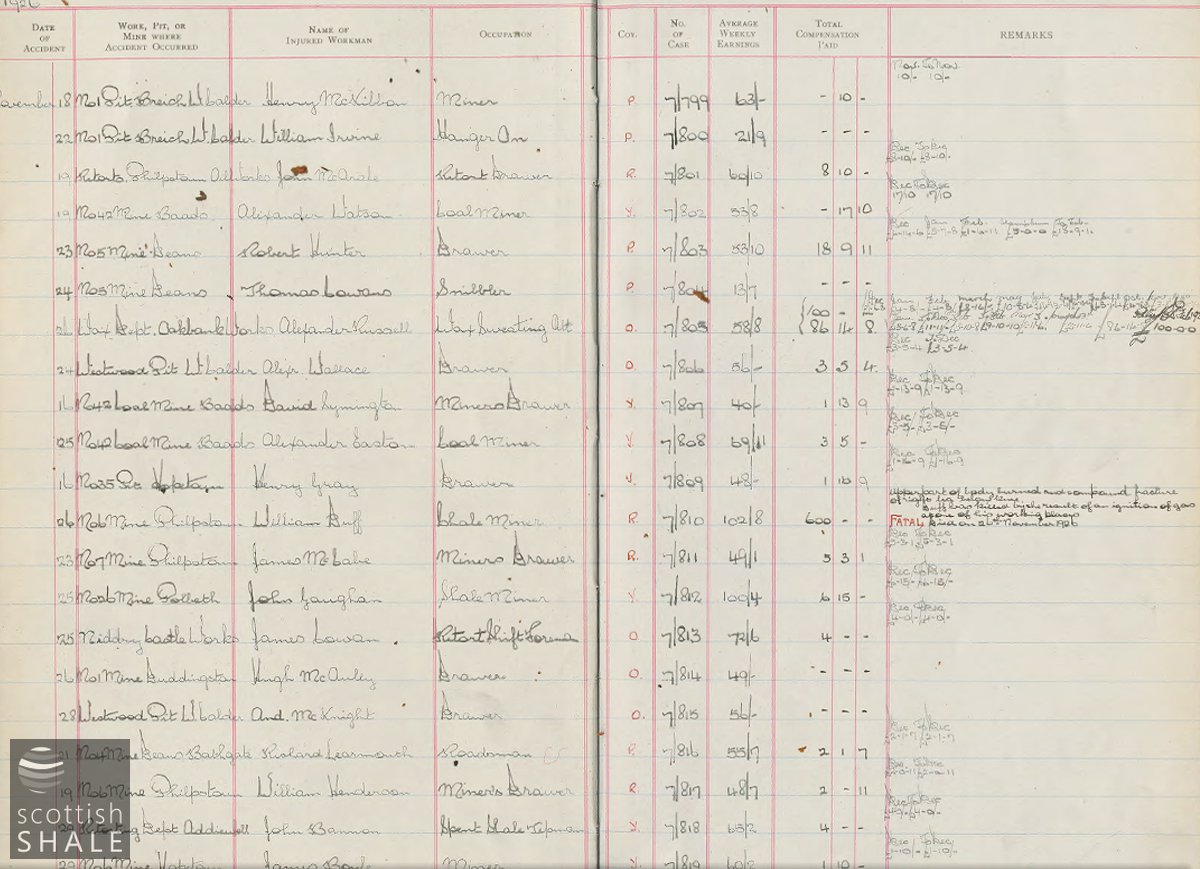 1926
DATE OF ACCIDENT WORK, PIT, OR MINE WHERE ACCIDENT OCCURRED NAME OF INJURED WORKMAN OCCUPATION COY. NO. OF CASE AVERAGE WEEKLY EARNINGS TOTAL COMPENSATION PAID REMARKS
Nov. To Nov.
10/- 10/-
November 18 No1 Pit Breich W. Calder Henry McKibbon Miner P. 7/799 63/- - 10 -
22 No1 Pit Breich W. Calder William Irvine Hanger On P. 7/800 21/9 - - -
Dec To Dec
£8-10/- £8-10/-
19 Retorts Philpstoun Oilworks John McArdle Retort Drawer R. 7/801 60/10 8 10 -
Dec To Dec
17/10 17/10
19 No42 Mine Baads. Alexander Watson Coal Miner Y. 7/802 53/8 - 17 10
Dec Jan Feb. To Feb.
23 No5 Mine Deans Robert Hunter Drawer P. 7/803 53/10 18 9 11
24 No5 Mine Deans Thomas Cowans Snibbler P. 7/804 13/7 - - -
26 Wax Dept. Oakbank Works Alexander Russell Wax Sweating Att O. 7/805 58/8 100 - -
86 14 8
Dec To Dec
£3-5-4 £3-5-4
24 Westwood Pit W. Calder Alexr. Wallace Drawer O. 7/806 56/- 3 5 4
Dec To Dec
£1-13-9 £1-13-9
16 No42 Coal Mine Baads David Lymington Miners Drawer Y. 7/807 40/- 1 13 9
Dec To Dec
£3-5/- £3-5/-
25 No42 Coal Mine Baads Alexander Easton Coal Miner Y. 7/808 69/11 3 5 -
Dec To Dec
£1-16-9 £1-16-9
16 No35 Pit Hopetoun Henry Gray Drawer Y. 7/809 48/- 1 16 9
Upper part of body burned and compound fracture
of right leg below knee.
Duff was killed by the result of an ignition of gas
26 No6 Mine Philpstoun William Duff Shale Miner R. 7/810 102/8 600 - - FATAL Died on 26th November 1926
Dec To Dec
£5-3-1 £5-3-1
23 No7 Mine Philpstoun James McCabe Miners Drawer R. 7/811 49/1 5 3 1
Dec To Dec
£6-15/- £6-15/-
25 No26 Mine Polbeth John Gaughan Shale Miner Y. 7/812 100/4 6 15 -
Dec To Dec
£4-0/- £4-0/-
25 Niddry Castle Works James Cowan Retort Shift Forema O. 7/813 72/6 4 - -
26 No1 Mine Duddingston Hugh McAuley Drawer O. 7/814 49/- - - -
28 Westwood Pit W. Calder And. McKnight Drawer O. 7/815 56/- - - -
Dec To Dec
£2-1-7 £2-1-7
21 No4 Mine Deans Bathgate Richard Learmonth Roadsman P. 7/816 55/7 2 1 7
Dec. To Dec
£2-0-11 £2-0-11
19 No6 Mine Philpstoun William Henderson Miner's Drawer R. 7/817 48/7 2 - 11
Dec To Dec
£4-0/- £4-0/-
29 Retorting Dept Addiewell John Bannon Spent Shale Tipman Y. 7/818 65/2 4 - -
Dec To Dec
£1-10/- £1-10/-
22 No6 Mine Hopetoun James Boyle Miner Y. 7/819 60/2 1 10 -
scottish
SHALE